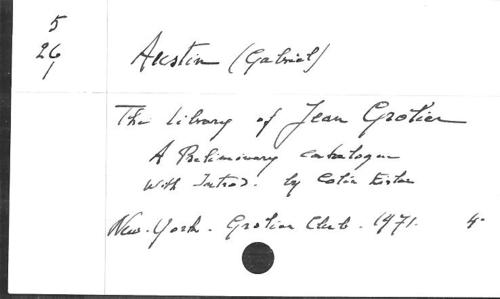 5
26
1
Austin (Gabriel)
The Library of Jean Grolier
A Preliminary catalogue
with Introd. by Colin Eisler
New-York. Grolier Club. 1971. 4°